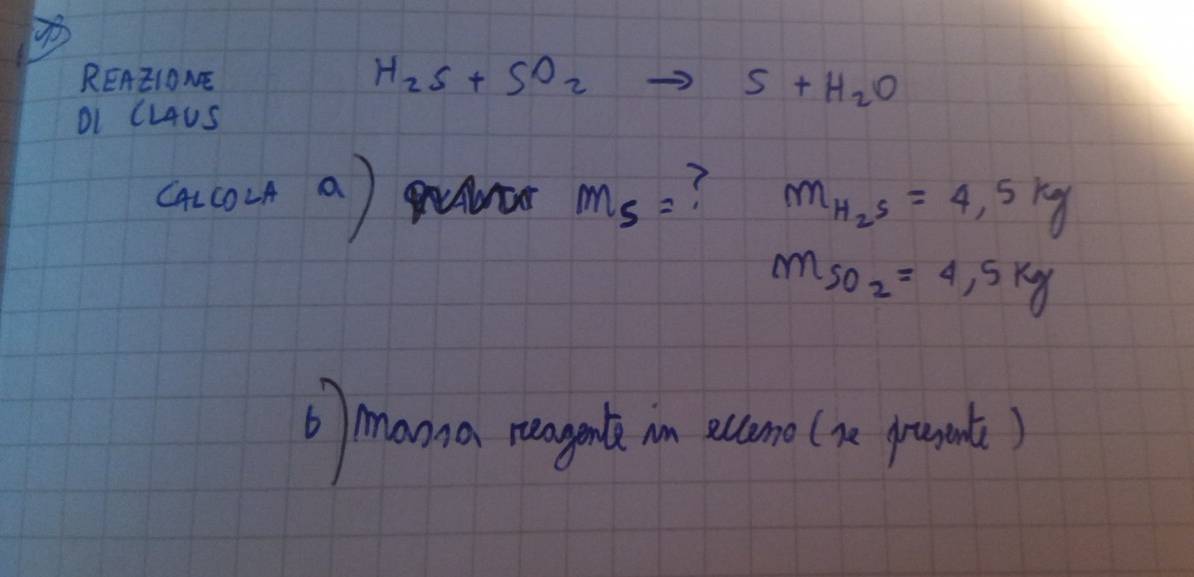 REAZIONE H₂S + SO₂ → S + H₂O
DI CLAUS
CALCOLA a) mS = ? mH₂S = 4,5 Kg
mSO₂ = 4,5 Kg
b) massa reagente in eccesso (se presente)